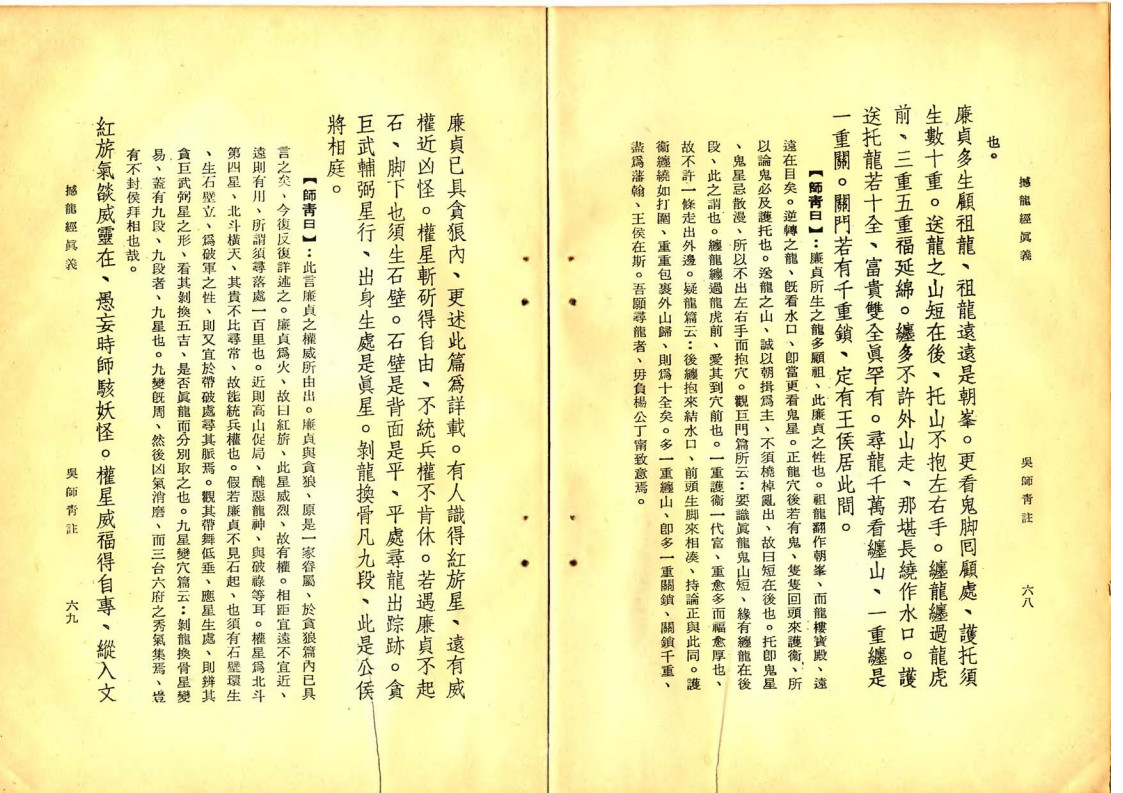 撼龍經眞義
吳師靑註
六八
也。
廉貞多生顧祖龍、祖龍遠遠是朝峯。更看鬼脚回顧處、護托須
生數十重。送龍之山短在後、托山不抱左右手。纏龍纏過龍虎
前、三重五重福延綿。纏多不許外山走、那堪長繞作水口。護
送托龍若十全、富貴雙全眞罕有。尋龍千萬看纏山、一重纏是
一重關。關門若有千重鎖、定有王侯居此間。
【師靑曰】：廉貞所生之龍多顧祖、此廉貞之性也。祖龍翻作朝峯、而龍樓寶殿、遠
遠在目矣。逆轉之龍、旣看水口、卽當更看鬼星。正龍穴後若有鬼、隻隻回頭來護衞、所
以論鬼必及護托也。送龍之山、誠以朝揖爲主、不須橈棹亂出、故曰短在後也。托卽鬼星
、鬼星忌散漫、所以不出左右手而抱穴。觀巨門篇所云：要識眞龍鬼山短、緣有纏龍在後
段、此之謂也。纏龍纏過龍虎前、愛其到穴前也。一重護衞一代富、重愈多而福愈厚也、
故不許一條走出外邊。疑龍篇云：後纏抱來結水口、前頭生脚來相湊、持論正與此同。護
衞纏繞如打圍、重重包裹外山歸、則爲十全矣。多一重纏山、卽多一重關鎖、關鎖千重、
盡爲藩翰、王侯在斯。吾願尋龍者、毋負楊公丁甯致意焉。
廉貞已具貪狼內、更述此篇爲詳載。有人識得紅旂星、遠有威
權近凶怪。權星斬斫得自由、不統兵權不肯休。若遇廉貞不起
石、脚下也須生石壁。石壁是背面是平、平處尋龍出踪跡。貪
巨武輔弼星行、出身生處是眞星。剝龍換骨凡九段、此是公侯
將相庭。
【師靑曰】：此言廉貞之權威所由出。廉貞與貪狼、原是一家眷屬、於貪狼篇內已具
言之矣、今復反復詳述之。廉貞爲火、故曰紅旂、此星威烈、故有權。相距宜遠不宜近、
遠則有用、所謂須尋落處一百里也。近則高山促局、醜惡龍神、與破祿等耳。權星爲北斗
第四星、北斗橫天、其貴不比尋常、故能統兵權也。假若廉貞不見石起、也須有石壁環生
、生石壁立、爲破軍之性、則又宜於帶破處尋其脈焉。觀其帶舞低垂、應星生處、則辨其
貪巨武弼星之形、看其剝換五吉、是否眞龍而分別取之也。九星變穴篇云：剝龍換骨星變
易、蓋有九段、九段者、九星也。九變旣周、然後凶氣消磨、而三台六府之秀氣集焉、豈
有不封侯拜相也哉。
紅旂氣燄威靈在、愚妄時師駭妖怪。權星威福得自專、縱入文
撼龍經眞義
吳師靑註
六九